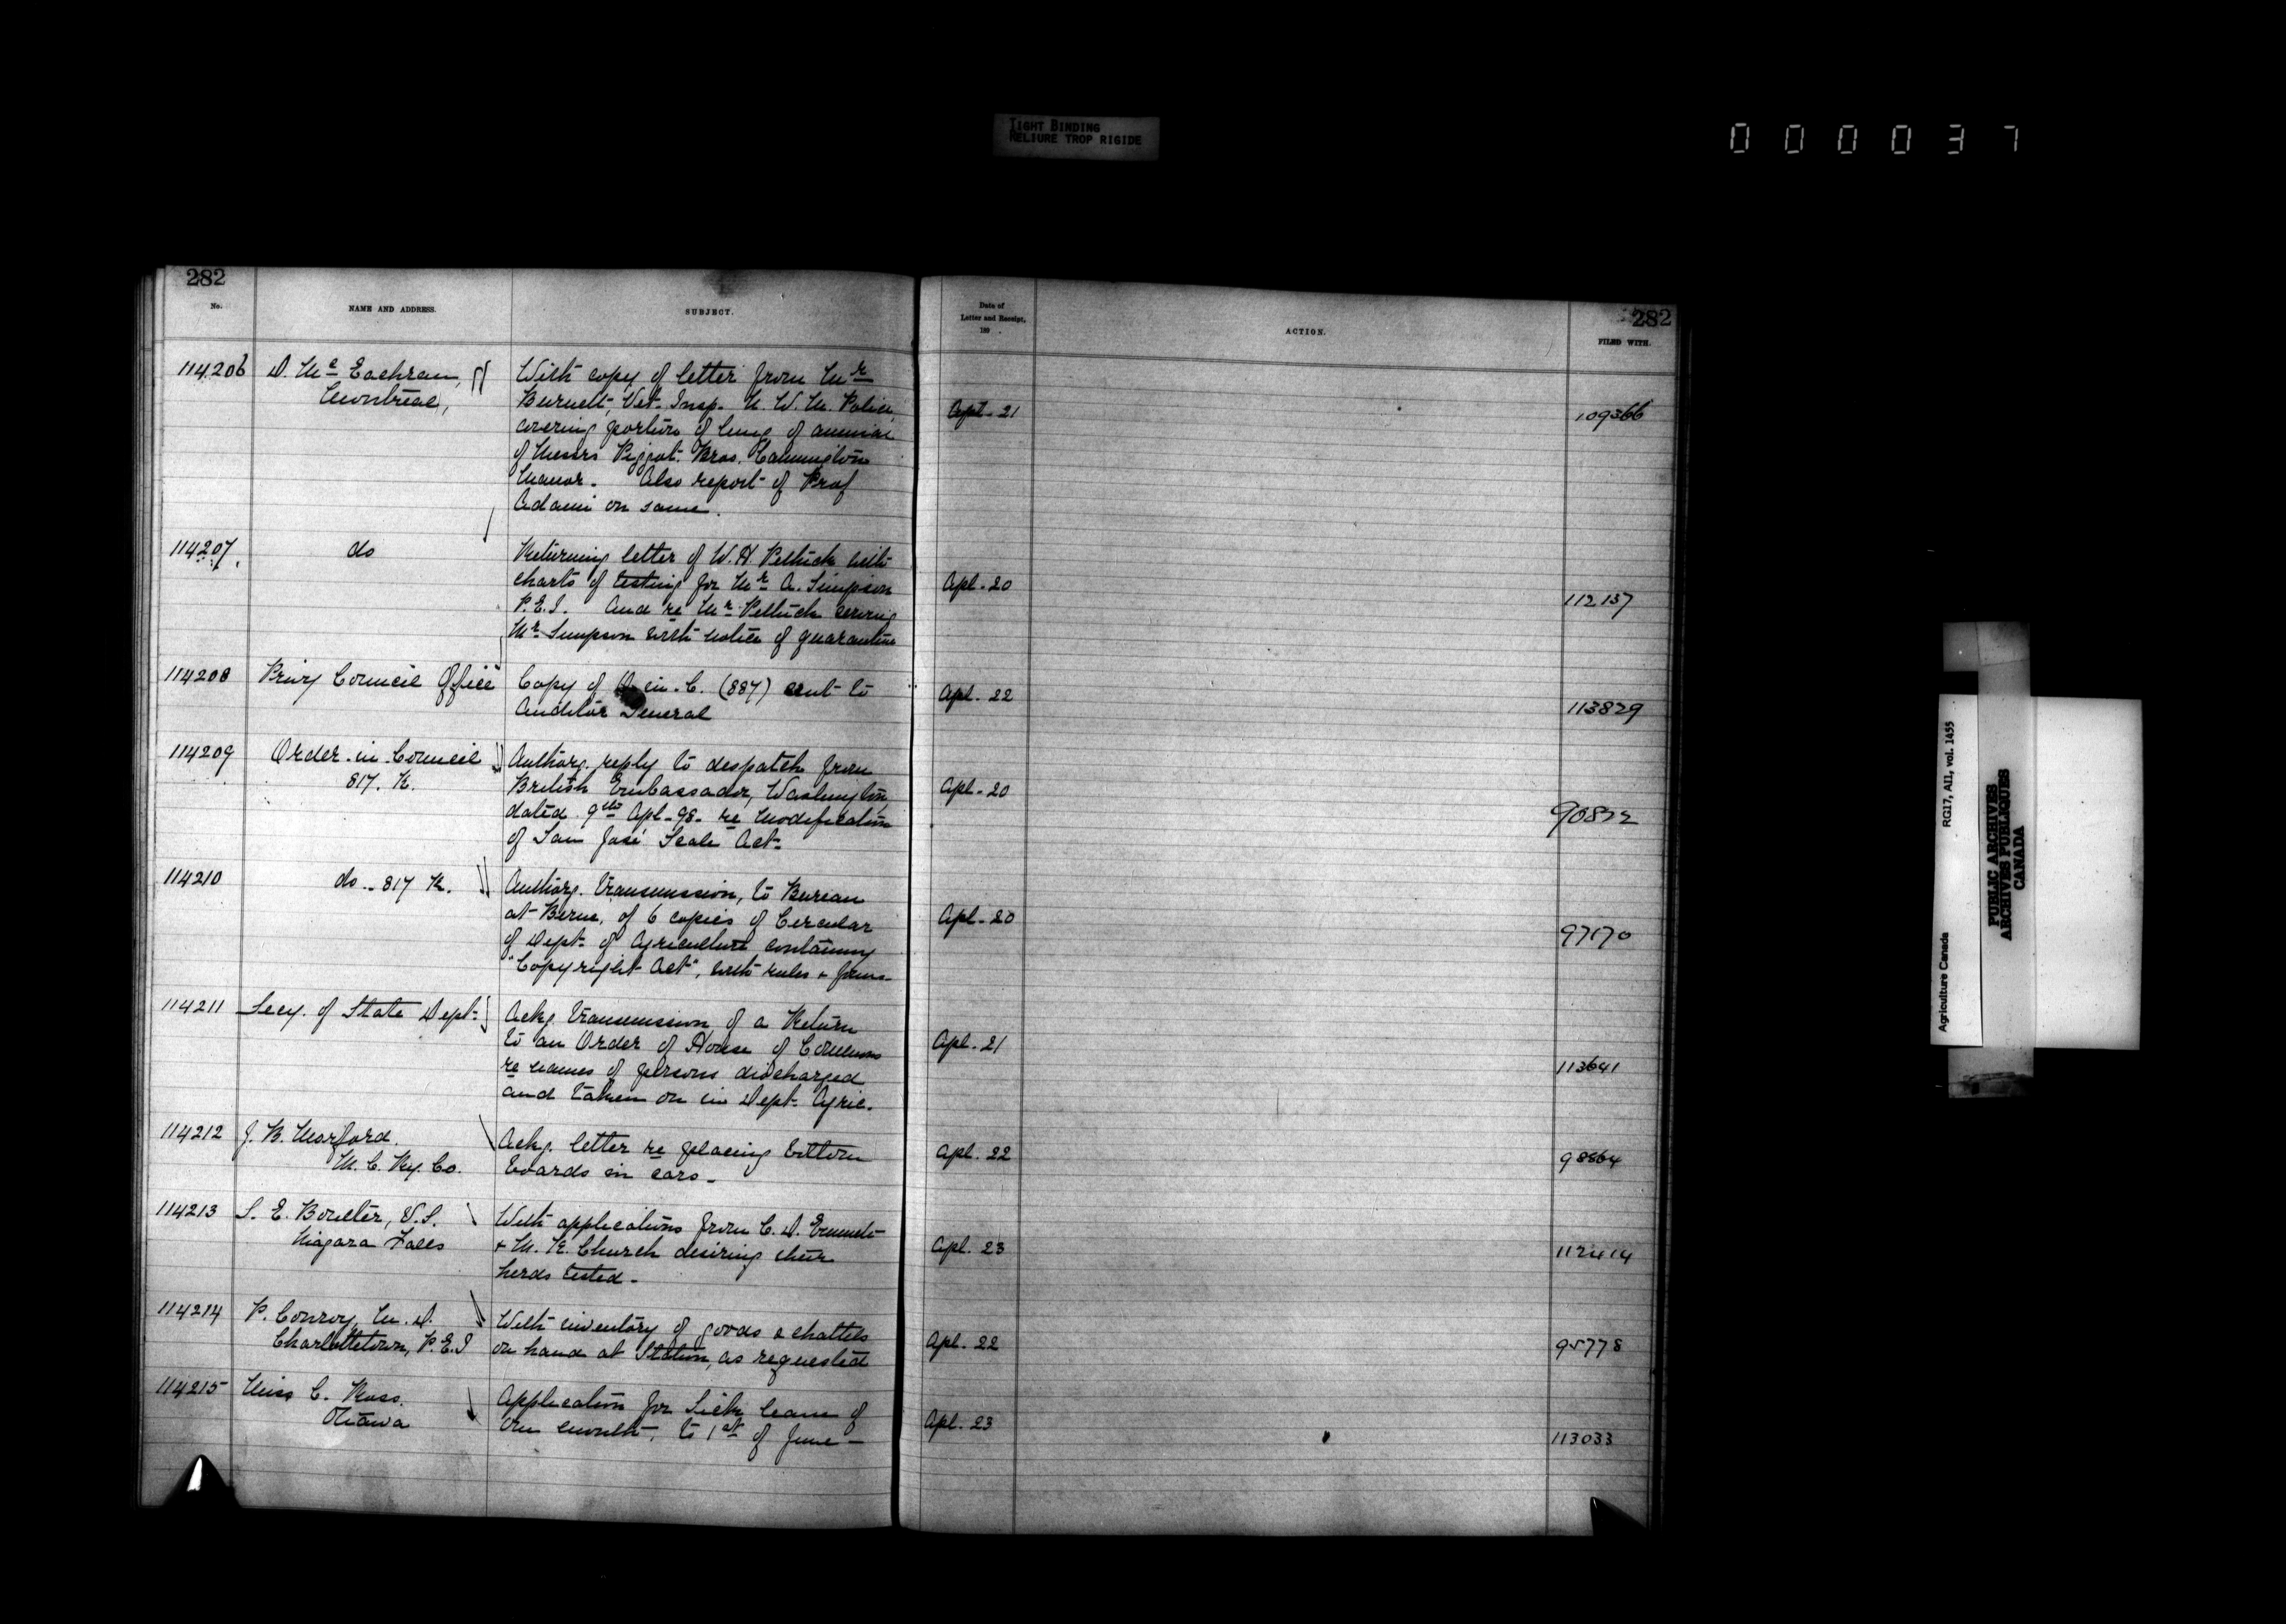 TIGHT BINDING
RELIURE TROP RIGIDE
000037
282
No.
NAME AND ADDRESS.
SUBJECT.
Date of
Letter and Receipt,
189 .
ACTION.
282
FILED WITH.
114206 D. Mc Eachran, With copy of letter from Mr
Montreal, Burnett, Vet. Insp. N. W. M. Police, Apl. 21 109366
covering portion of lung of animal
of Messrs Pigot Bros. Cannington
Manor. Also report of Prof
Adami on same.
114207 do Returning letter of W. H. Pethick with
charts of testing for Mr A. Simpson Apl. 20 112137
P.E.I. And re Mr Pethick serving
Mr Simpson with notice of quarantine
114208 Privy Council Office Copy of O. in. C. (887) sent to Apl. 22 113829
Auditor General
114209 Order in Council Authorg. reply to despatch from
817. K. British Embassador, Washington, Apl. 20
dated 9th Apl. 98. re modification 90872
of San José Scale Act.
114210 do .. 817 K. Authorg. transmission, to Bureau
at Berne, of 6 copies of Circular Apl. 20 97170
of Dept. of Agriculture containing
"Copyright Act", with rules & forms.
114211 Secy. of State Dept. Ackg transmission of a Return
to an Order of House of Commons Apl. 21 113641
re names of persons discharged
and taken on in Dept. Agric.
114212 J. B. Morford. Ackg. letter re placing bottom Apl. 22 98864
M. C. Ry. Co. boards in cars.
114213 S. E. Boulter, V.S. With applications from C. D. Emmett
Niagara Falls & M. K. Church desiring their Apl. 23 112414
herds tested.
114214 P. Conroy, M. D. With inventory of goods & chattels
Charlottetown, P.E.I on hand at Station, as requested Apl. 22 95778
114215 Miss C. Ross. Application for Sick leave of
Ottawa one month, to 1st of June Apl. 23 113033
Agriculture Canada RG17, AII, vol. 1455
PUBLIC ARCHIVES
ARCHIVES PUBLIQUES
CANADA